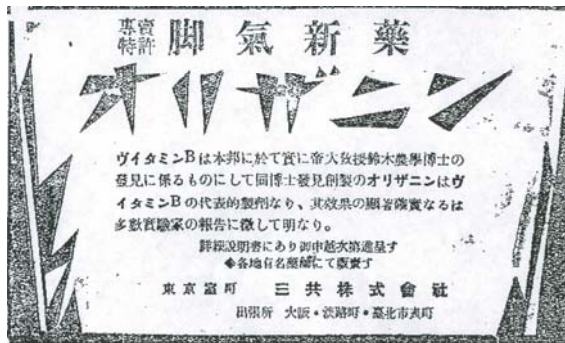 專賣特許 脚氣新藥
オリザニン
ヴイタミンBは本邦に於て實に帝大敎授鈴木農學博士の
發見に係るものにして同博士發見創製のオリザニンはヴ
イタミンBの代表的製劑なり、其效果の顯著確實なるは
多數實驗家の報告に徵して明なり。
詳細說明書にあり御申越次第進呈す
◆各地有名藥舖にて販賣す
東京室町 三共株式會社
出張所 大阪・淡路町・臺北市表町